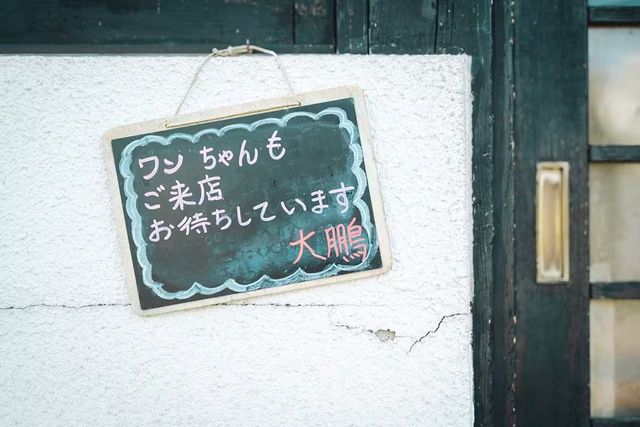 ワンちゃんも
ご来店
お待ちしています
大鵬